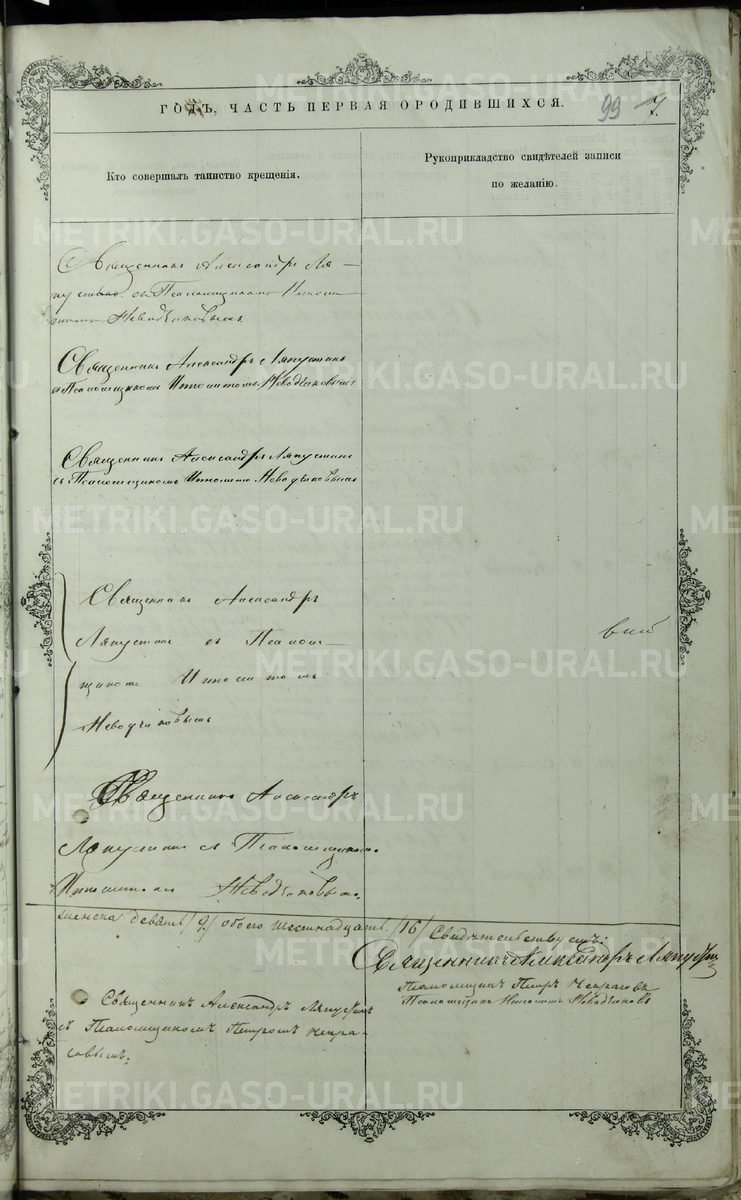 ГОДЪ, ЧАСТЬ ПЕРВАЯ О РОДИВШИХСЯ.
99 7
Кто совершалъ таинство крещенія.
Рукоприкладство свидѣтелей записи
по желанію.
Священникъ Александръ Ля-
пустинъ съ Псаломщикомъ Иппои-
томъ Неводчиковымъ
Священникъ Александръ Ляпустинъ
съ Псаломщикомъ Ипполитомъ Неводчиковымъ
Священникъ Александръ Ляпустинъ
съ Псаломщикомъ Ипполитомъ Неводчиковымъ
Священникъ Александръ
Ляпустинъ съ Псалом-
щикомъ Ипполитомъ
Неводчиковымъ
Священникъ Александръ
Ляпустинъ съ Псаломщикомъ
Ипполитомъ Неводчиковымъ.
женска девять /9/ обоего шестнадцать. /16/ Свидѣтельствуемъ:
Священникъ Александръ Ляпустинъ
Псаломщикъ Петръ Некрасовъ
Псаломщикъ Ипполитъ Неводчиковъ
Священникъ Александръ Ляпустинъ
съ Псаломщикомъ Петромъ Некра-
совымъ.
METRIKI.GASO-URAL.RU